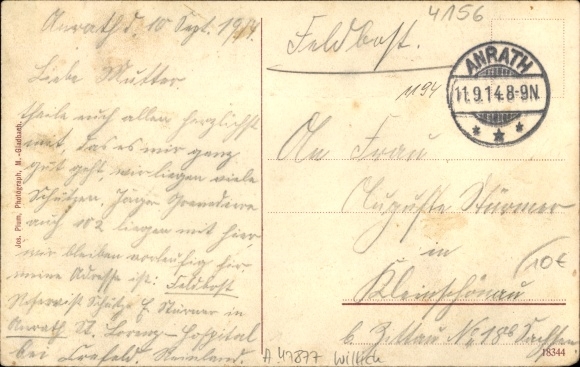 4156
Anrath d. 10 Sept. 1914.
Feldpost.
ANRATH
11.9.14.8-9N.
1194
Liebe Mutter.
theile euch allen herzlichst
mit, das es mir ganz
gut geht, wir liegen viele
Schützen, Jäger
auch 102 liegen mit hier
wir bleiben vorläufig hier.
meine Adresse ist: Feldpost
Schütze E Stürmer in
Anrath St. Lorenz-Hospital
bei Crefeld. Reinland.
An Frau
Auguste Stürmer
in
Kleinschönau
b. Zittau No 18b Sachsen.
10€
Jos. Pium, Photograph, M.-Gladbach.
A 41877 Willich
18344